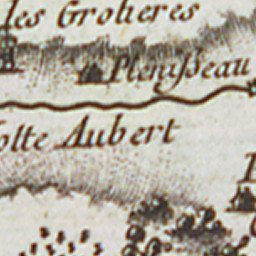 les Grolieres
Plenisseau
olte Aubert